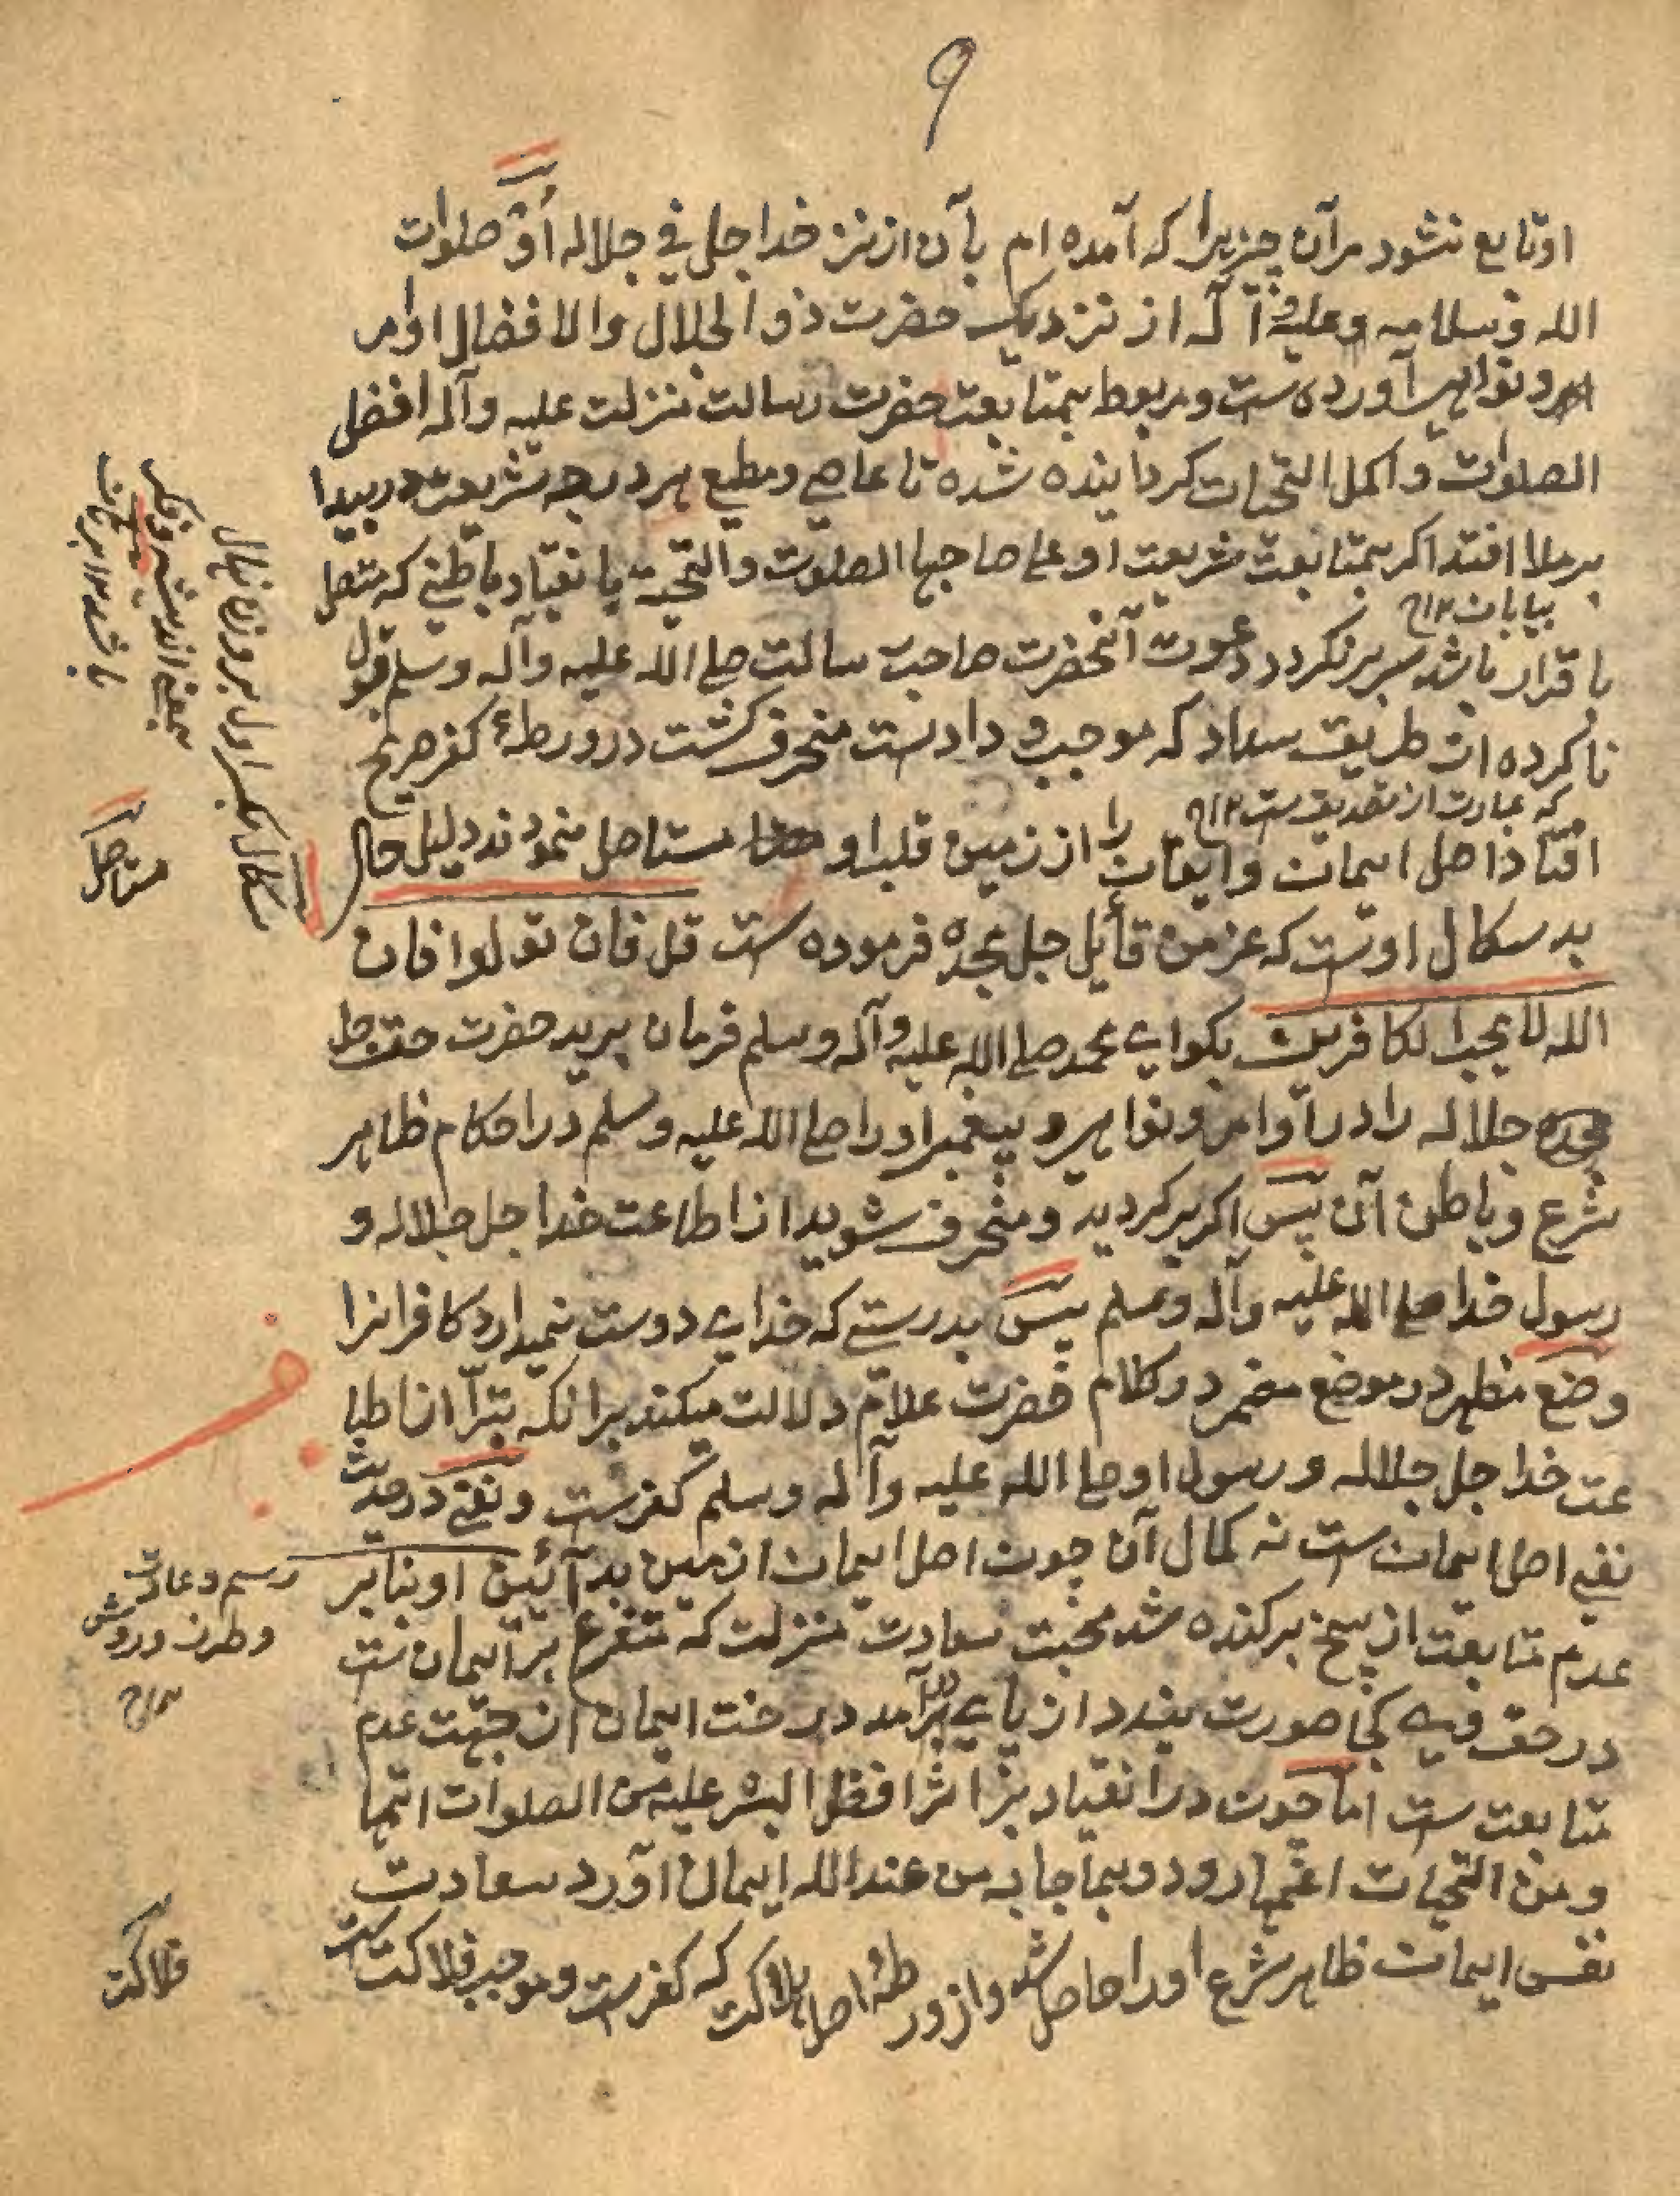 ۹
اوتابع نشود مرآن چیزیرا که آمده ام بآن از نزد خدا جلی فی جلاله أو صلوات
الله وسلامه وعلیه آ که از نزدیک حضرت ذو الجلال والافضال اوامر
ونواهی آورده ست ومربوط بمتابعت حضرت رسالت منزلت علیه وآله افضل
الصلوات واکمل التحیات کردانیده شده تا عاصی ومطیع هر درجه شریعت در بیدا
برملا افتد اکر بمتابعت شریعت او علی صاحبها الصلوت والتحیة بانقیاد باطنی که متصل
بیابان ۱۲
باقرار باشد سر برنکردد دعوت آنحضرت صاحب رسالت صلی الله علیه وآله وسلم قبول
ناکرده از طریق سداد که موجب وداد ست منحرف کشت در ورطهٔ کفر صریح
که عبارت از تصدیق ست ۱۲
افتاد اصل ایمان وایقان را از زمین قلب او مستاصل نمودند دلیل حال
بد سکال اوست که عز من قأیل جل مجده فرموده ست قل فان تولوا فان
الله لا یحب الکافرین بکو ای محمد صلی الله علیه وآله وسلم فرمان برید حضرت حق جل
مجده جلاله را در اوامر ونواهی و پیغمبر او را صلی الله علیه وسلم در احکام ظاهر
شرع وباطن آن پس اکر برکردید ومنحرف شوید از اطاعت خدا جل جلاله و
رسول خدا صلی الله علیه وآله وسلم پس بدرستی که خدای دوست نمیدارد کافرانرا
وضع مظهر در موضع مضمر در کلام حضرت علام دلالت میکند برانکه تبرّا از اطا
عت خدا جل جلاله و رسول او صلی الله علیه وآله وسلم کفرست ونفی در حدیث
نفی اصل ایمان ست نه کمال آن چون اصل ایمان از زمین بد آئین او بنابر
عدم متابعت از بیخ برکنده شد محبت سعادت منزلت که متفرع بر ایمان ست
در حق وی کجا صورت بندد از پای برآمد درخت ایمان از جهت عدم
متابعت ست اما چون در انقیاد بر اثر افضل البشر علیه من الصلوات اتمها
ومن التحیات اعمها رود وبما جا به من عند الله ایمان آورد سعادت
نفس ایمان ظاهر شرع او را حاصل شد واز ورطهٔ اصل هلاکت که کفرست وموجب فلاکت ست
سکال بکسر اول بروزن نهال
بمعنی اندیشه وفکر
باشد ۱۲ برهان
مستاصل
رسم وعادت
وطرز وروش
۱۲
فلاکت